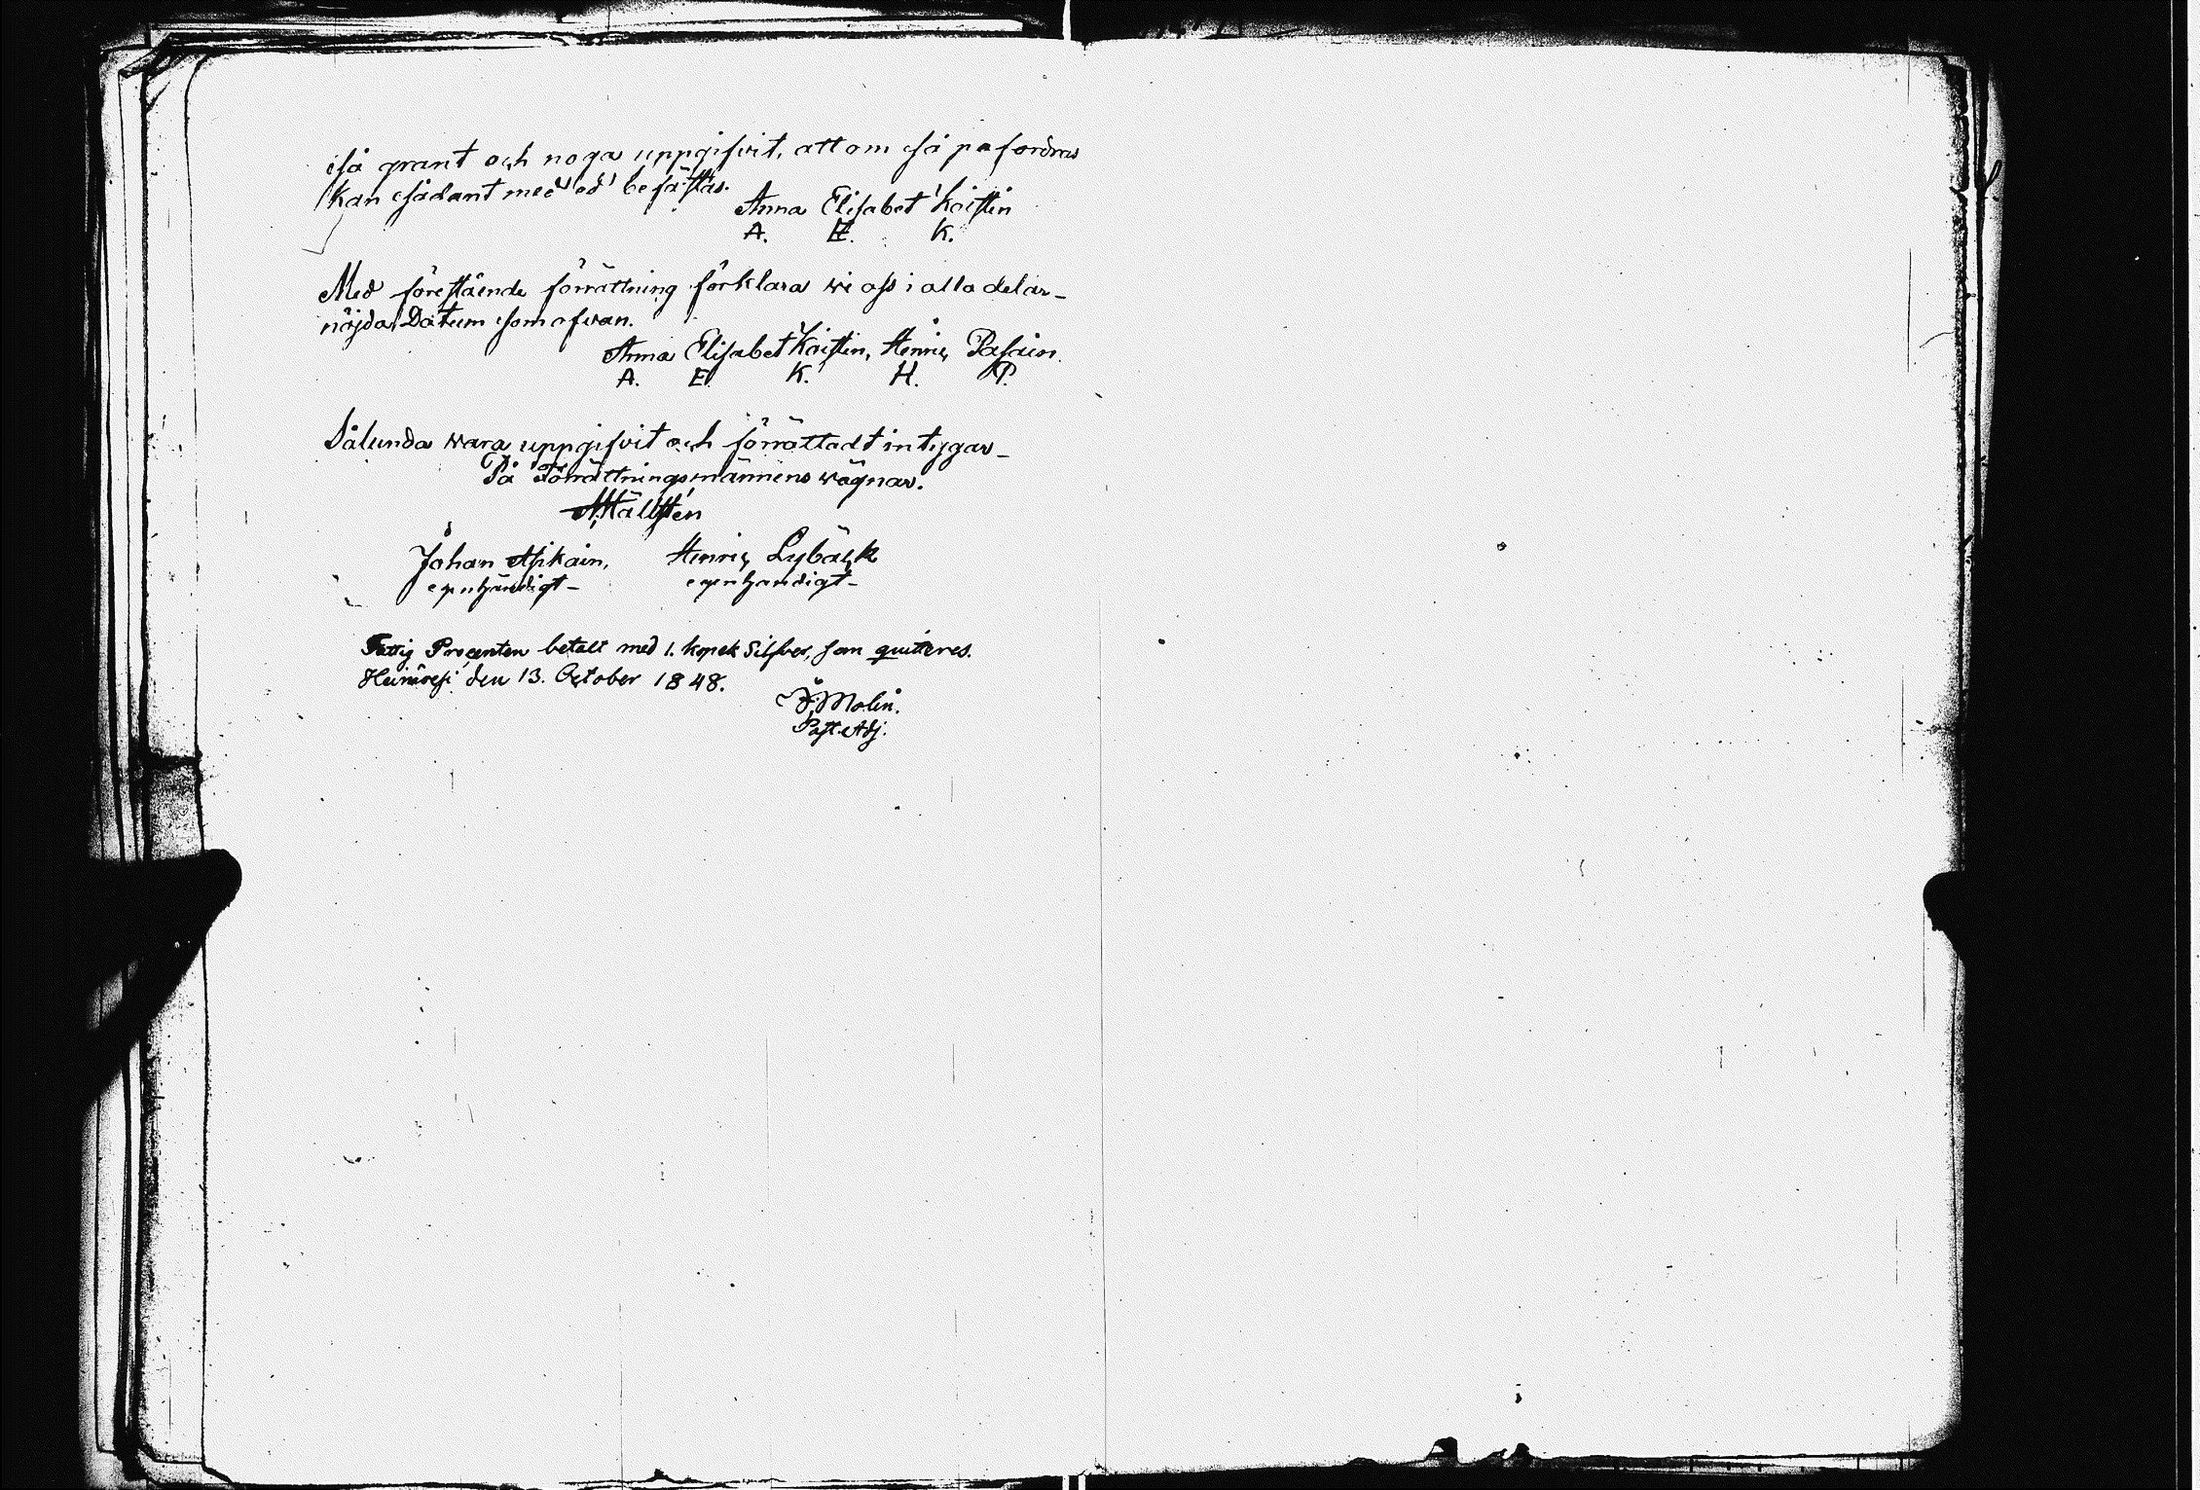 så grant och noga uppgifvit, att om så påfordras
kan sådant med ed befästas.
Anna Elisabet Kaistin
A. E. K.
Med förestående förrättning förklara wi oss i alla delar
nöjda Datum som ofwan.
Anna Elisabet Kaistin, Henric Pasain.
A. E. K. H. P.
Sålunda wara uppgifvit och förrättadt intygar
På Förrättningsmännens wägnar.
Hällstén
Johan Asikain, Henric Lybäck
egenhändigt egenhändigt
Fattig Procenten betalt med 1. kopek Silfver, som quitteres.
Heinävesi den 13. October 1848.
J. Molin.
Past. Adj.